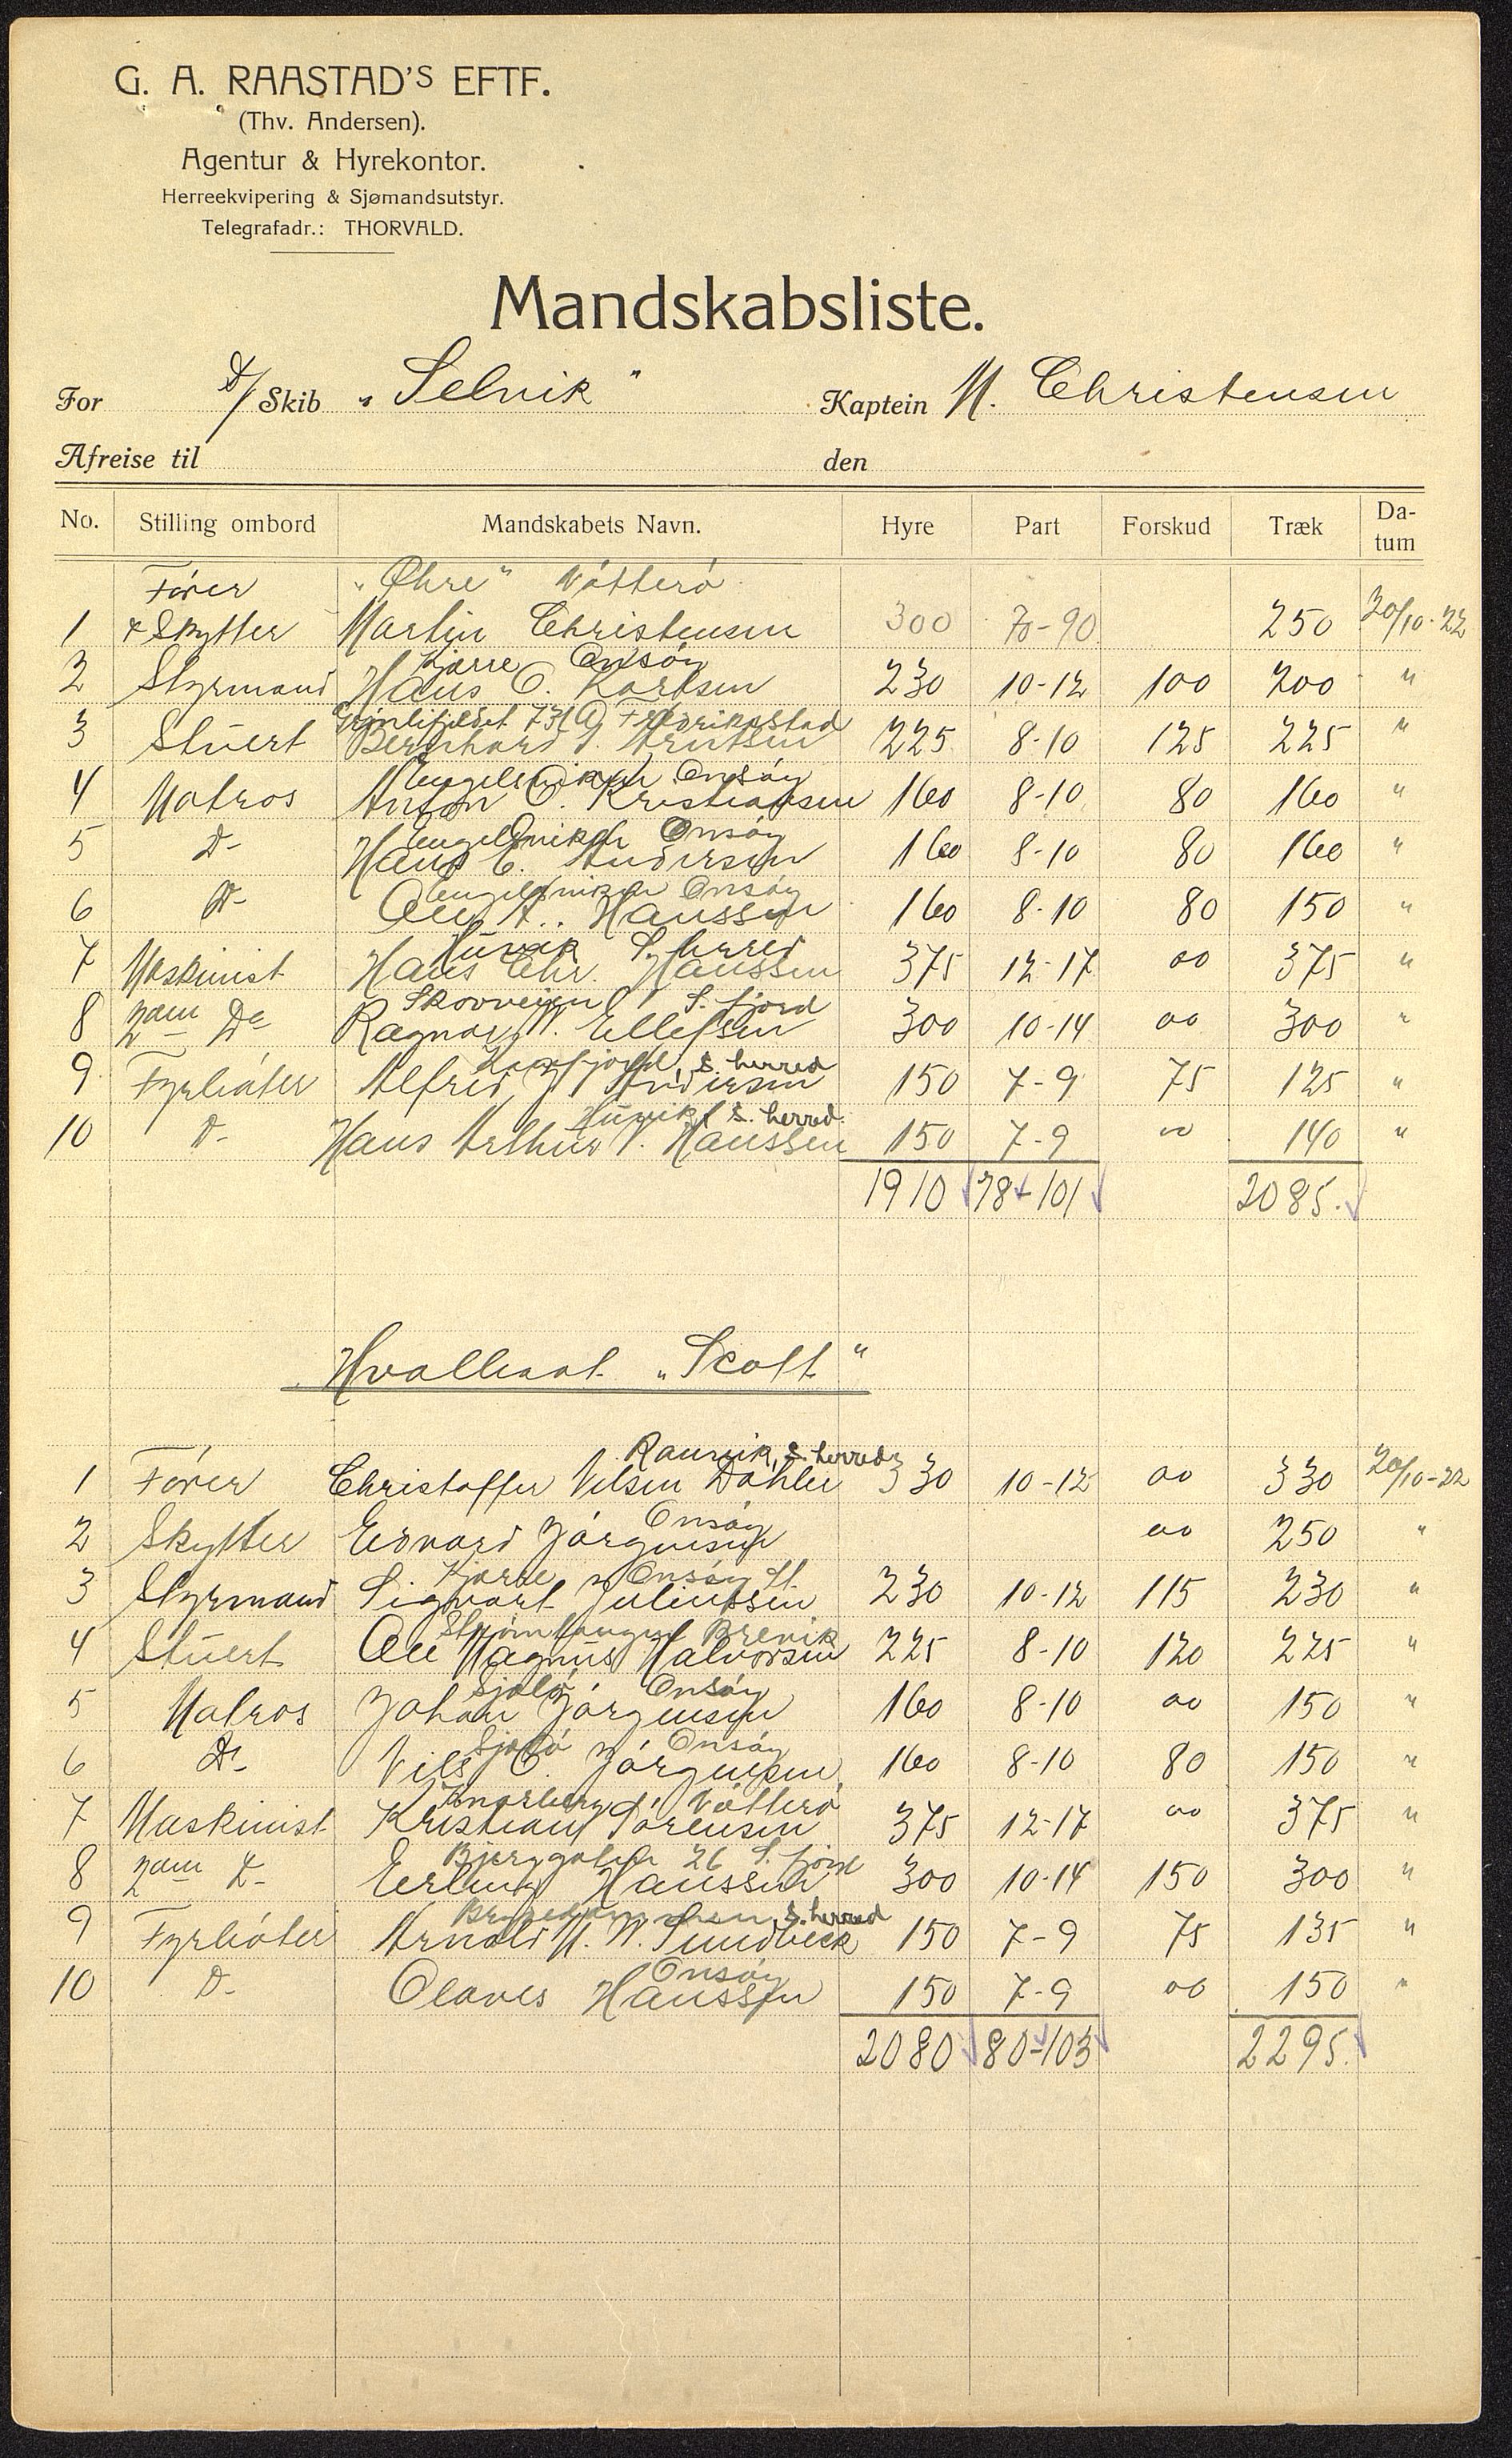 G. A. RAASTAD'S EFTF.
(Thv. Andersen).
Agentur & Hyrekontor.
Herreekvipering & Sjømandsutstyr.
Telegrafadr.: THORVALD.
Mandskabsliste.
For D/ Skib „Selvik" Kaptein M. Christensen
Afreise til den
No. Stilling ombord Mandskabets Navn. Hyre Part Forskud Træk Da-tum
Fører „Øhre" Nötterö
1 & Skytter Martin Christensen 300 70-90 250 20/10-22
Kjærre Onsöy
2 Styrmand Hans O. Karlsen 230 10-12 100 200 "
731 Fredrikstad
3 Stuert Bernhard Arntsen 225 8-10 125 225 "
Engelsviken Onsöy
4 Matros Anton O. Kristiansen 160 8-10 80 160 "
Engelsviken Onsöy
5 Do Hans E. Andersen 160 8-10 80 160 "
Engelsviken Onsöy
6 Do Ole A. Hanssen 160 8-10 80 150 "
Huvik S. herred
7 Maskinist Hans Chr. Hanssen 375 12-17 00 375 "
Skovveien S. fjord
8 2den Do Ragnar Ellefsen 300 10-14 00 300 "
S. herred
9 Fyrböter Alfred Andersen 150 7-9 75 125 "
Huvik S. herred
10 Do Hans Arthur Hanssen 150 7-9 00 140 "
1910 78-101 2085.
Hvalbaat „Scott"
Rauvik, S. herred
1 Fører Christoffer Nilsen Dahler 330 10-12 00 330 20/10-22
Onsöy
2 Skytter Edvard Jörgensen 00 250 "
Kjærre Onsöy
3 Styrmand Sigvart Juliussen 230 10-12 115 230 "
Brevik
4 Stuert Ole Magnus Halvorsen 225 8-10 120 225 "
Onsöy
5 Matros Johan Jörgensen 160 8-10 00 150 "
Onsöy
6 Do Nils O. Jörgensen 160 8-10 80 150 "
Knarberg Nötterö
7 Maskinist Kristian Sörensen 375 12-17 00 375 "
Bjerggaten 26 S. fjord
8 2den Do Erling Hanssen 300 10-14 150 300 "
S. herred
9 Fyrböter Arnold M. N. Sundbeck 150 7-9 75 135 "
Onsöy
10 Do Olaves Hanssen 150 7-9 00 150 "
2080 80-103 2295.